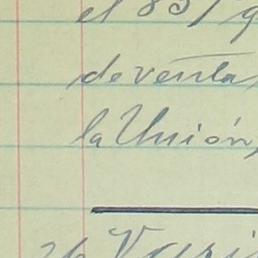 el 85/g
de venta
la Unión,
26 Vari